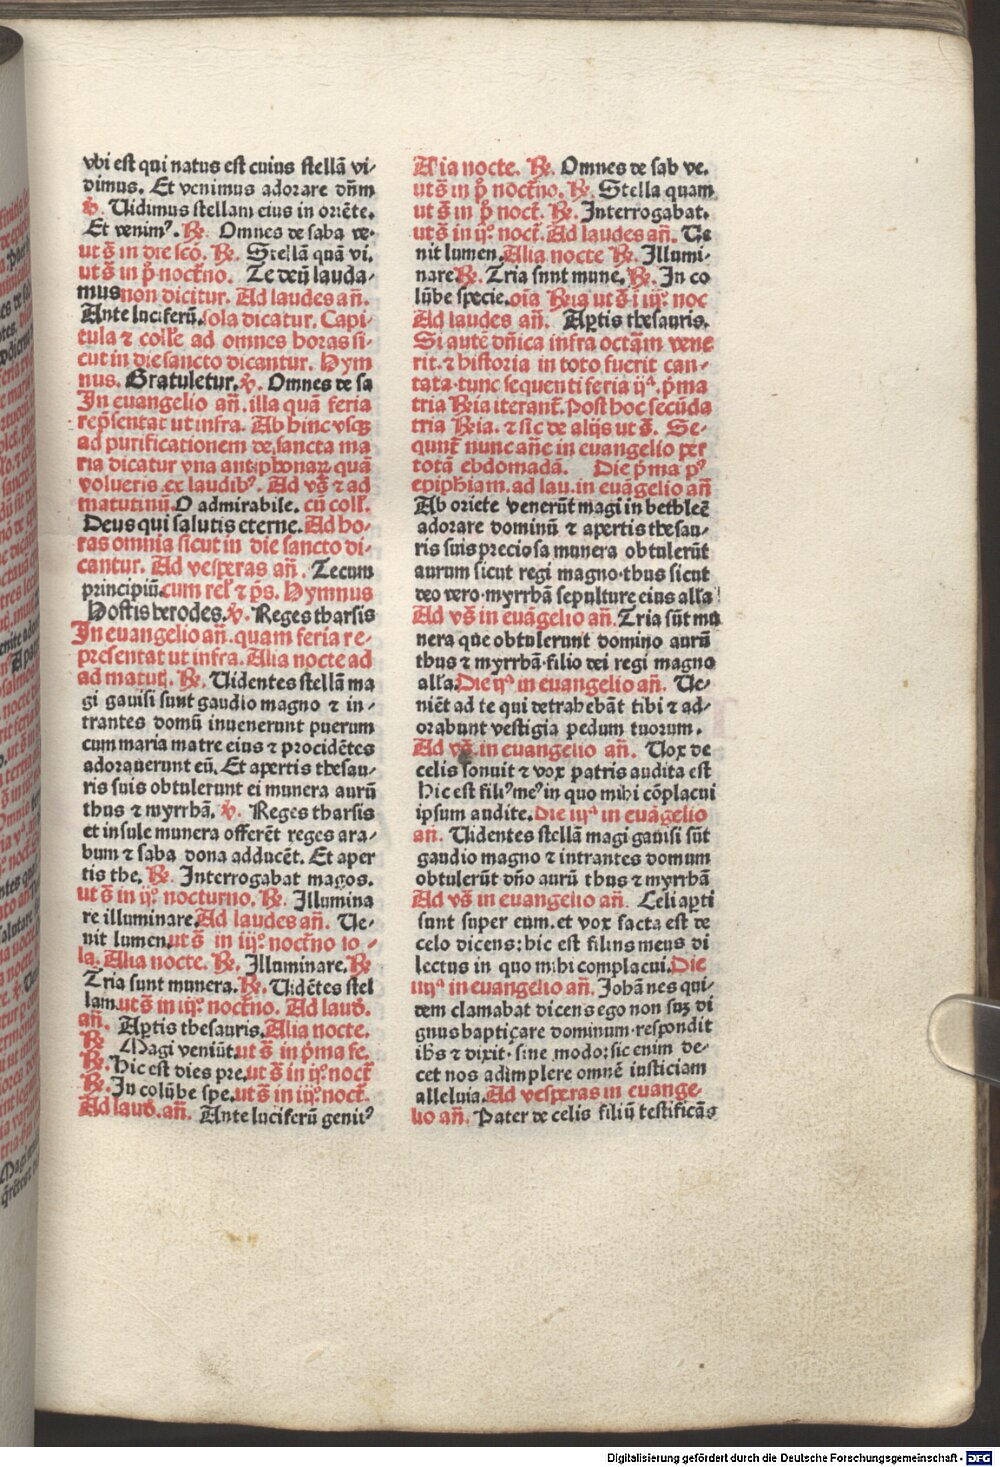 vbi est qui natus est cuius stellā vi⸗
dimus. Et venimus adorare dn̄m
℣. Uidimus stellam eius in oriēte.
Et venimꝰ. ℟. Omnes de saba ve⸗
ut s̄ in die scō. ℟. Stellā quā vi.
ut s̄ in p̊ noct̄no. Te deū lauda⸗
mus non dicitur. Ad laudes an̄.
Ante luciferū. sola dicatur. Capi⸗
tula ⁊ coll'e ad omnes horas si⸗
cut in die sancto dicantur. Hym
nus. Gratuletur. ℣. Omnes de sa
In euangelio an̄. illa quā feria
rep̄sentat ut infra. Ab hinc vsqꝫ
ad purificationem de sancta ma
ria dicatur vna antiphonaꝝ quā
volueris. ex laudibꝰ. Ad vs̄ ⁊ ad
matutinū. O admirabile. cū coll'.
Deus qui salutis eterne. Ad ho⸗
ras omnia sicut in die sancto di⸗
cantur. Ad vesperas an̄. Tecum
principiū. cum rel' ⁊ p̄s. Hymnus
Hostis herodes. ℣. Reges tharsis
In euangelio an̄. quam feria re⸗
presentat ut infra. Alia nocte ad
ad matuti. ℟. Uidentes stellā ma
gi gauisi sunt gaudio magno ⁊ in⸗
trantes domū inuenerunt puerum
cum maria matre eius ⁊ procidētes
adorauerunt eū. Et apertis thesau⸗
ris suis obtulerunt ei munera aurū
thus ⁊ myrrhā. ℣. Reges tharsis
et insule munera offerēt reges ara⸗
bum ⁊ saba dona adducēt. Et aper
tis the. ℟. Interrogabat magos.
ut s̄ in ijº. nocturno. ℟. Illumina
re illuminare. Ad laudes an̄. Ue⸗
nit lumen. ut s̄ in iijº. noct̄no io⸗
la. Alia nocte. ℟. Illuminare. ℟
Tria sunt munera. ℟. Uidētes stel
lam. ut s̄ in iijº. noct̄no. Ad laud̄.
an̄. Aꝑtis thesauris. Alia nocte.
℟ Magi veniūt. ut s̄ in p̄ma fe.
℟. Hic est dies pre. ut s̄ in ijº. noct̄
℟. In colūbe spe. ut s̄ in iijº. noct̄.
Ad laud̄. an̄. Ante luciferū genitꝰ
Alia nocte. ℟. Omnes de sab ve.
ut s̄ in p̊ noct̄no. ℟. Stella quam
ut s̄ in p̊ noct̄. ℟. Interrogabat.
ut s̄ in ijº. noct̄. Ad laudes an̄. Ue
nit lumen. Alia nocte ℟. Illumi⸗
nare ℟. Tria sunt mune. ℟. In co
lūbe specie. oīa ℟ia ut s̄ i iijº. noc
Ad laudes an̄. Aꝑtis thesauris.
Si autē dn̄ica infra octam̄ vene
rit. ⁊ historia in toto fuerit can⸗
tata. tunc sequenti feria ijª. p̄ma
tria ℟ia iterant̄. Post hoc secūda
tria ℟ia. ⁊ sic de alijs ut s̄. Se⸗
qunt̄ nunc an̄e in euangelio per
totā ebdomadā. Die p̄ma pꝰ
epiphiam. ad lau. in euāgelio an̄
Ab oriēte venerūt magi in bethleē
adorare dominū ⁊ apertis thesau⸗
ris suis preciosa munera obtulerūt
aurum sicut regi magno. thus sicut
deo vero. myrrhā sepulture eius all'a
Ad vs̄ in euāgelio an̄. Tria sūt mu
nera que obtulerunt domino aurū
thus ⁊ myrrhā. filio dei regi magno
all'a. Die ijª in euangelio an̄. Ue⸗
niēt ad te qui detrahebāt tibi ⁊ ad⸗
orabunt vestigia pedum tuorum.
Ad vs̄. in euangelio an̄. Uox de
celis sonuit ⁊ vox patris audita est
hic est filiꝰ meꝰ in quo mihi cōplacui
ipsum audite. Die iijª in euāgelio
an̄. Uidentes stellā magi gauisi sūt
gaudio magno ⁊ intrantes domum
obtulerūt dn̄o aurū thus ⁊ myrrhā
Ad vs̄ in euangelio an̄. Celi aꝑti
sunt super eum. et vox facta est de
celo dicens: hic est filius meus di
lectus in quo mihi complacui. Die
iiijª in euangelio an̄. Johānes qui⸗
dem clamabat dicens ego non suꝫ di
gnus baptiçare dominum. respondit
ihs̄ ⁊ dixit. sine modo: sic enim de⸗
cet nos adimplere omnē iusticiam
alleluia. Ad vesperas in euange⸗
lio an̄. Pater de celis filiū testificās
Digitalisierung gefördert durch die Deutsche Forschungsgemeinschaft - DFG